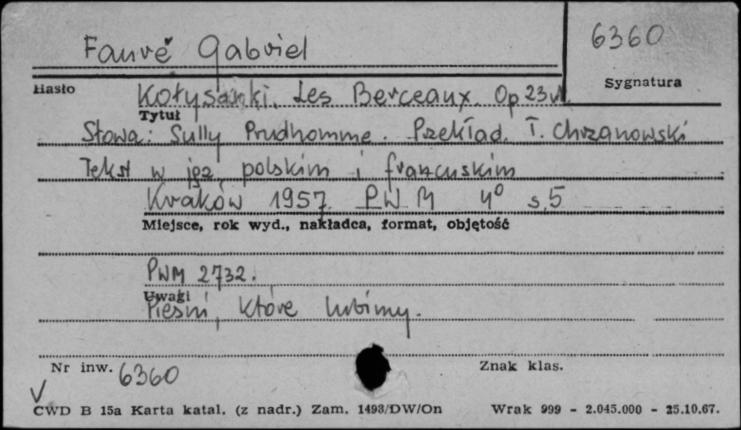 Fauré Gabriel
6360
Hasło
Sygnatura
Kołysanki. Les Berceaux. Op 23
Tytuł
Słowa: Sully Prudhomme. Przekład. T. Chrzanowski
Tekst w jęz. polskim i francuskim
Kraków 1957 PWM 4° s.5
Miejsce, rok wyd., nakładca, format, objętość
PWM 2732.
Uwagi
Pieśni, które lubimy.
Nr inw. 6360
Znak klas.
CWD B 15a Karta katal. (z nadr.) Zam. 1493/DW/On Wrak 999 - 2.045.000 - 25.10.67.